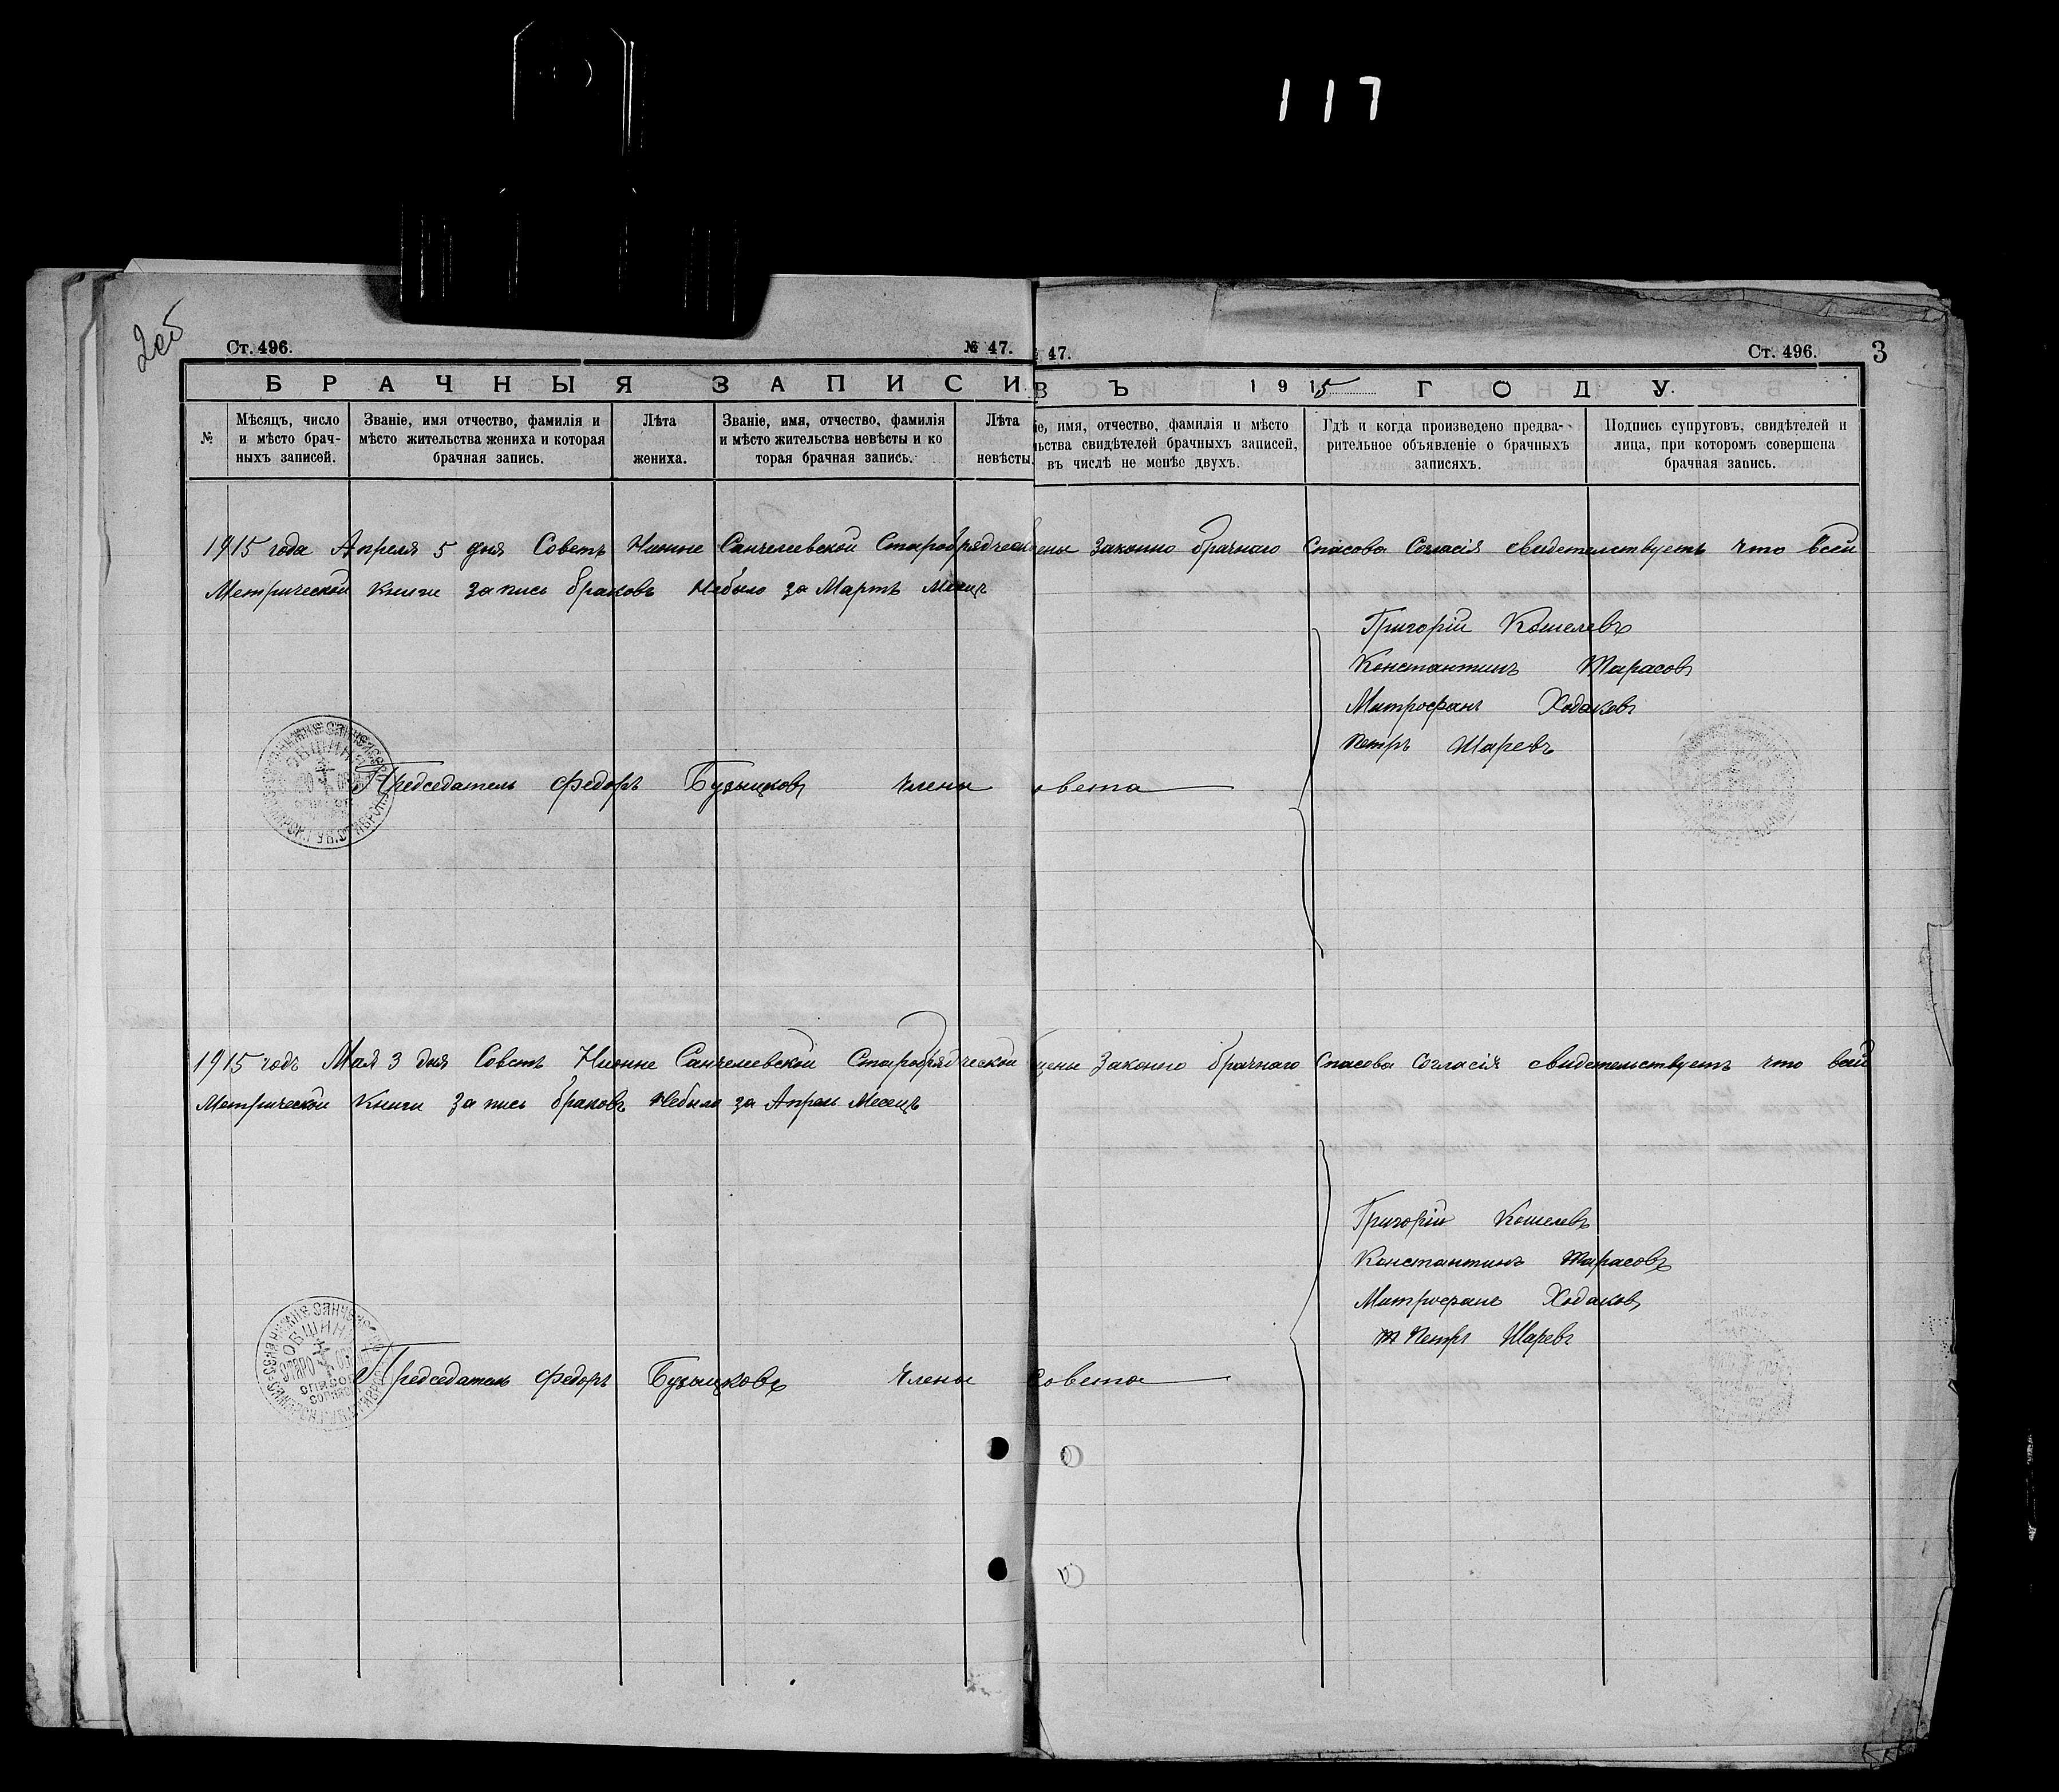 117
Ст. 496.
№ 47.
47.
Ст. 496.
3
БРАЧНЫЯ ЗАПИСИ
ВЪ 1915 ГОДУ.
№
Мѣсяцъ, число
и мѣсто брач-
ныхъ записей.
Званіе, имя отчество, фамилія и
мѣсто жительства жениха и которая
брачная запись.
Лѣта
жениха.
Званіе, имя, отчество, фамилія
и мѣсто жительства невѣсты и ко
торая брачная запись.
Лѣта
невѣсты.
іе, имя, отчество, фамилія и мѣсто
льства свидѣтелей брачныхъ записей,
въ числѣ не менѣе двухъ.
Гдѣ и когда произведено предва-
рительное объявленіе о брачныхъ
записяхъ.
Подпись супруговъ, свидѣтелей и
лица, при которомъ совершена
брачная запись.
1915 года Апреля 5 дня Советъ Нижне Санчелеевской Старобрядчес щены Законно брачнаго Спасова Согласія свидетельствуетъ что всей
Метрической Книги запись браковъ Небыло за Мартъ Месяц
Григорій Кошелевъ
Константинъ Тарасовъ
Митрофанъ Ходаковъ
Петръ Шаревъ
Председатель Федоръ Бузыцковъ Члены овета
1915 годъ Мая 3 дня Советъ Нижне Санчелеевской Старобрядческой щены Законно брачнаго Спасова Согласія свидетельствуетъ что всей
Метрической Книги запись браковъ Небыло за Апрель Месецъ
Григорій Кошелевъ
Константинъ Тарасовъ
Митрофанъ Ходаковъ
Петръ Шаревъ
Председатель Федоръ Бузыцковъ Члены Совета